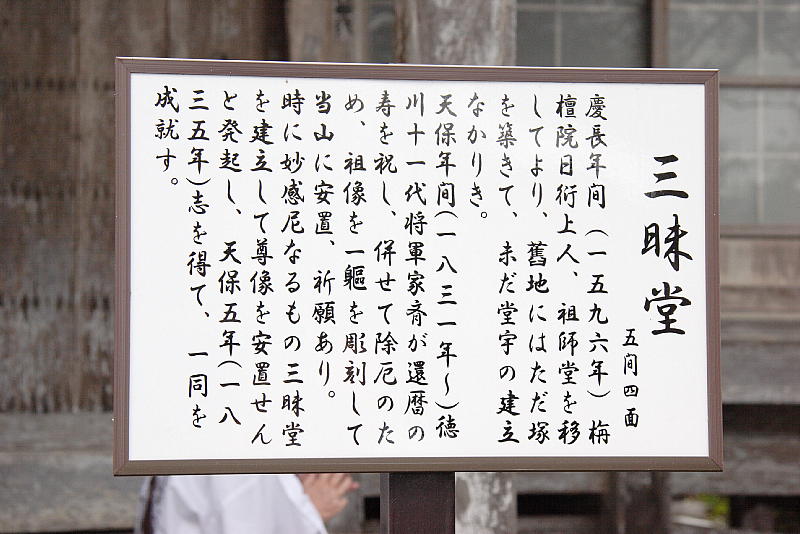 三昧堂
五间四面
慶長年间(一五九六年)梅
檀院日衍上人、祖師堂を移
してより、舊地にはただ塚
を築きて、未だ堂宇の建立
なかりき。
天保年间(一八三一年~)徳
川十一代将軍家斉が還暦の
寿を祝し、併せて除厄のた
め、祖像を一軀を彫刻して
当山に安置、祈願あり。
時に妙感尼なるもの三昧堂
を建立して尊像を安置せん
と発起し、天保五年(一八
三五年)志を得て、一同を
成就す。